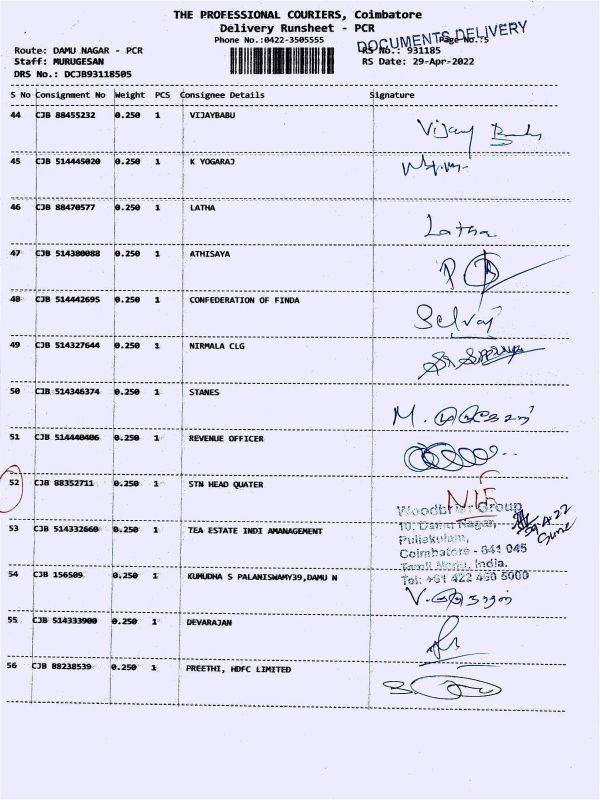 THE PROFESSIONAL COURIERS, Coimbatore
Delivery Runsheet - PCR
Phone No.:0422-3505555
DOCUMENTS DELIVERY
Page No.:5
Route: DAMU NAGAR - PCR
RS No.: 931185
Staff: MURUGESAN
RS Date: 29-Apr-2022
DRS No.: DCJB93118505
S No Consignment No Weight PCS Consignee Details Signature
44 CJB 88455232 0.250 1 VIJAYBABU
Vijay Babu
45 CJB 514445020 0.250 1 K YOGARAJ
46 CJB 88470577 0.250 1 LATHA
Latha
47 CJB 514380088 0.250 1 ATHISAYA
48 CJB 514442695 0.250 1 CONFEDERATION OF FINDA
Selvaj
49 CJB 514327644 0.250 1 NIRMALA CLG
50 CJB 514346374 0.250 1 STANES
M.
51 CJB 514440406 0.250 1 REVENUE OFFICER
52 CJB 88352711 0.250 1 STN HEAD QUATER
Woodbriar Group
53 CJB 514332660 0.250 1 TEA ESTATE INDI AMANAGEMENT
10, Damu Nagar,
Puliakulam,
Coimbatore - 641 045
Tamil Nadu, India.
54 CJB 156509 0.250 1 KUMUDHA S PALANISWAMY39,DAMU N
Tel: +91 422 450 5000
V.
55 CJB 514333900 0.250 1 DEVARAJAN
56 CJB 88238539 0.250 1 PREETHI, HDFC LIMITED